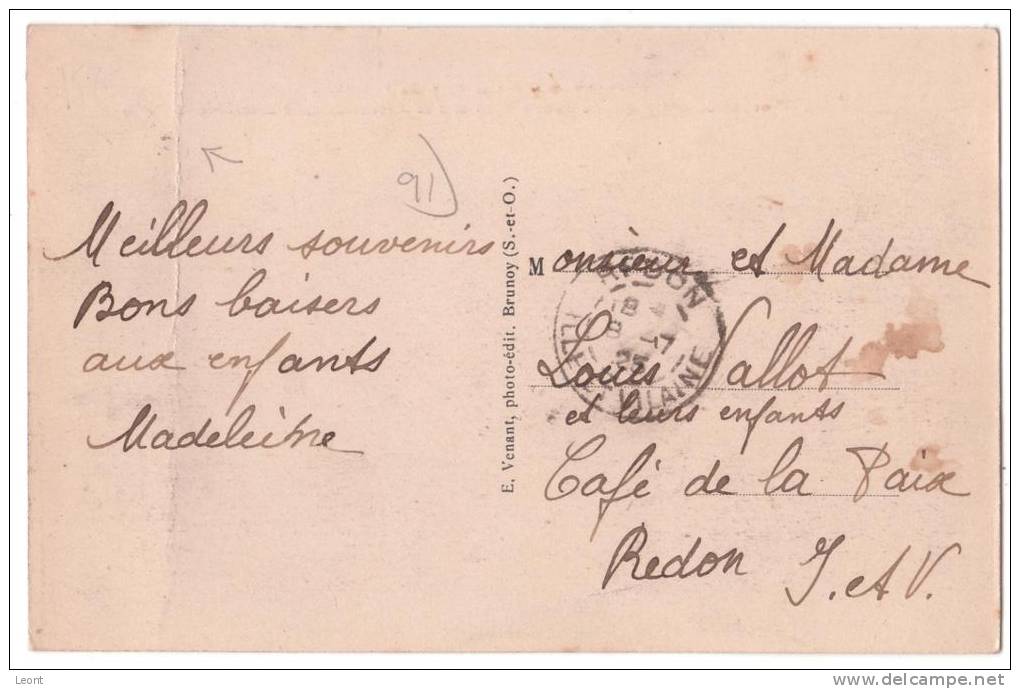 91
Meilleurs souvenirs
Bons baisers
aux enfants
Madeleine
E. Venant, photo-édit. Brunoy (S.-et-O.)
Monsieur et Madame
Louis Vallot
et leurs enfants
Café de la Paix
Redon I. et V.
REDON
ILLE-ET-VILAINE
Leont
www.delcampe.net